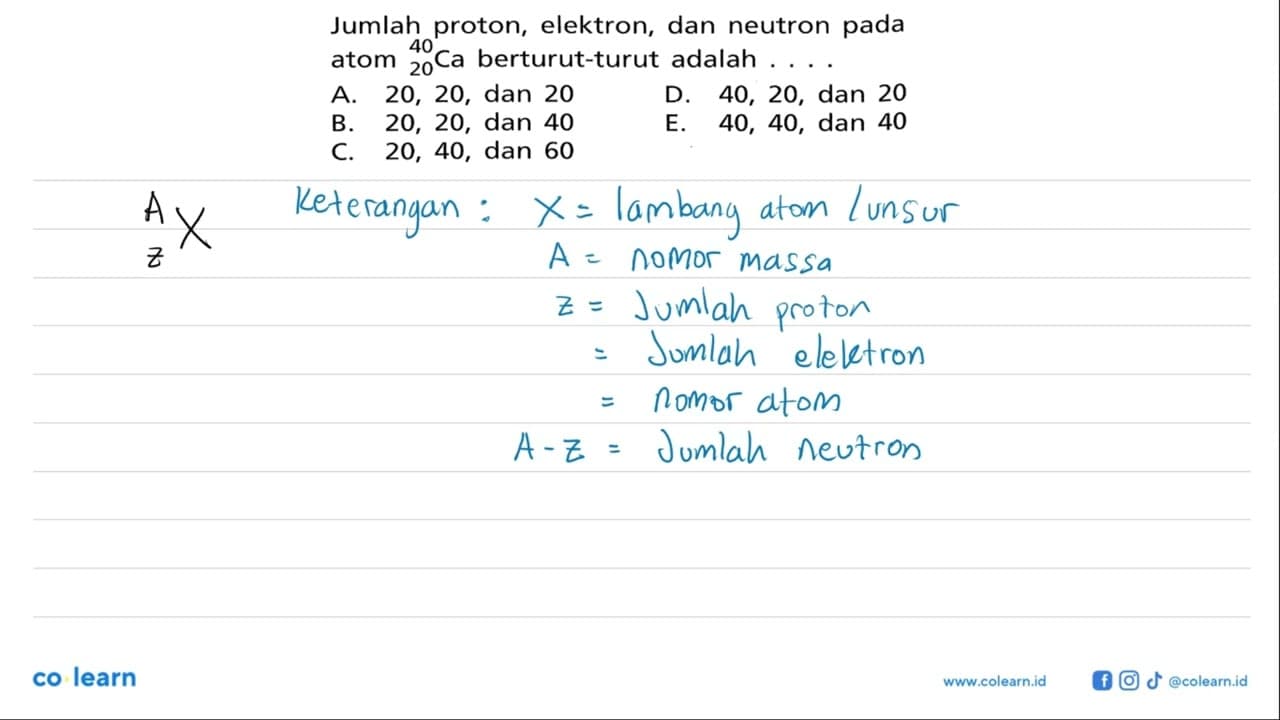 Jumlah proton, elektron, dan neutron pada
atom ⁴⁰₂₀Ca berturut-turut adalah . . . .
A. 20, 20, dan 20
B. 20, 20, dan 40
C. 20, 40, dan 60
D. 40, 20, dan 20
E. 40, 40, dan 40
A
Z X
Keterangan : X = lambang atom / unsur
A = nomor massa
Z = Jumlah proton
= Jumlah elektron
= nomor atom
A - Z = Jumlah neutron
co learn
www.colearn.id
@colearn.id